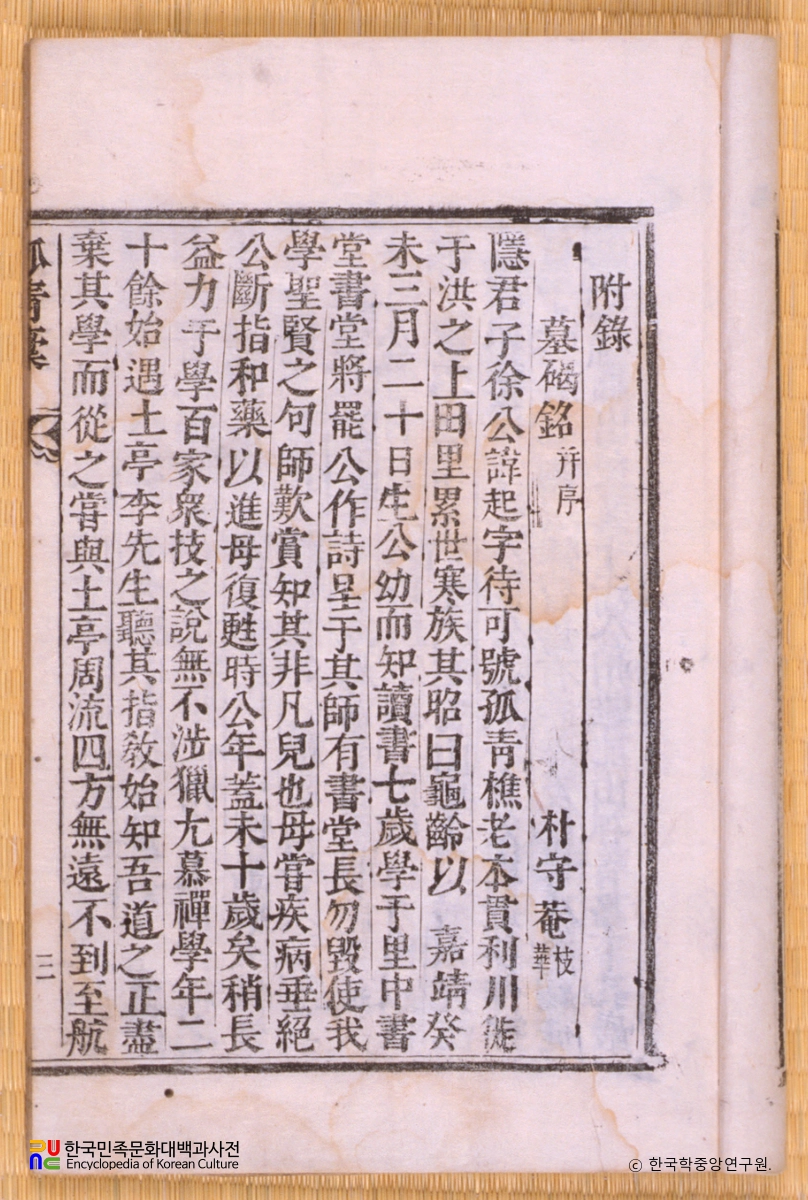 附錄
墓碣銘 幷序 朴守菴 枝華
隱君子徐公諱起字待可號孤靑樵老本貫利川徙
于洪之上田里累世寒族其昭曰龜齡以 嘉靖癸
未三月二十日生公幼而知讀書七歲學于里中書
堂書堂將罷公作詩呈于其師有書堂長勿毀使我
學聖賢之句師歎賞知其非凡兒也母嘗疾病垂絕
公斷指和藥以進母復甦時公年蓋未十歲矣稍長
益力于學百家衆技之說無不涉獵尤慕禪學年二
十餘始遇土亭李先生聽其指敎始知吾道之正盡
棄其學而從之嘗與土亭周流四方無遠不到至航
孤靑遺稾
三
한국민족문화대백과사전
Encyclopedia of Korean Culture
ⓒ 한국학중앙연구원.